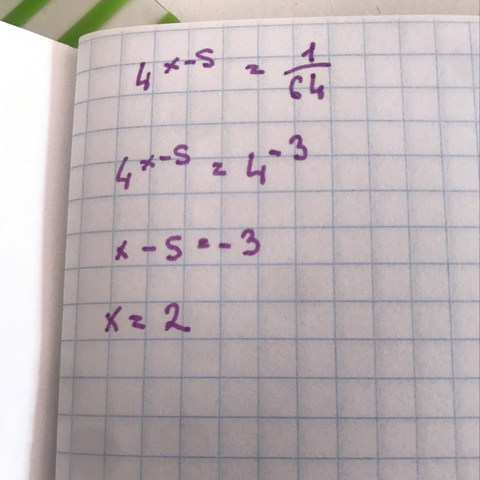 4^{x-5} = \frac{1}{64}
4^{x-5} = 4^{-3}
x - 5 = -3
x = 2